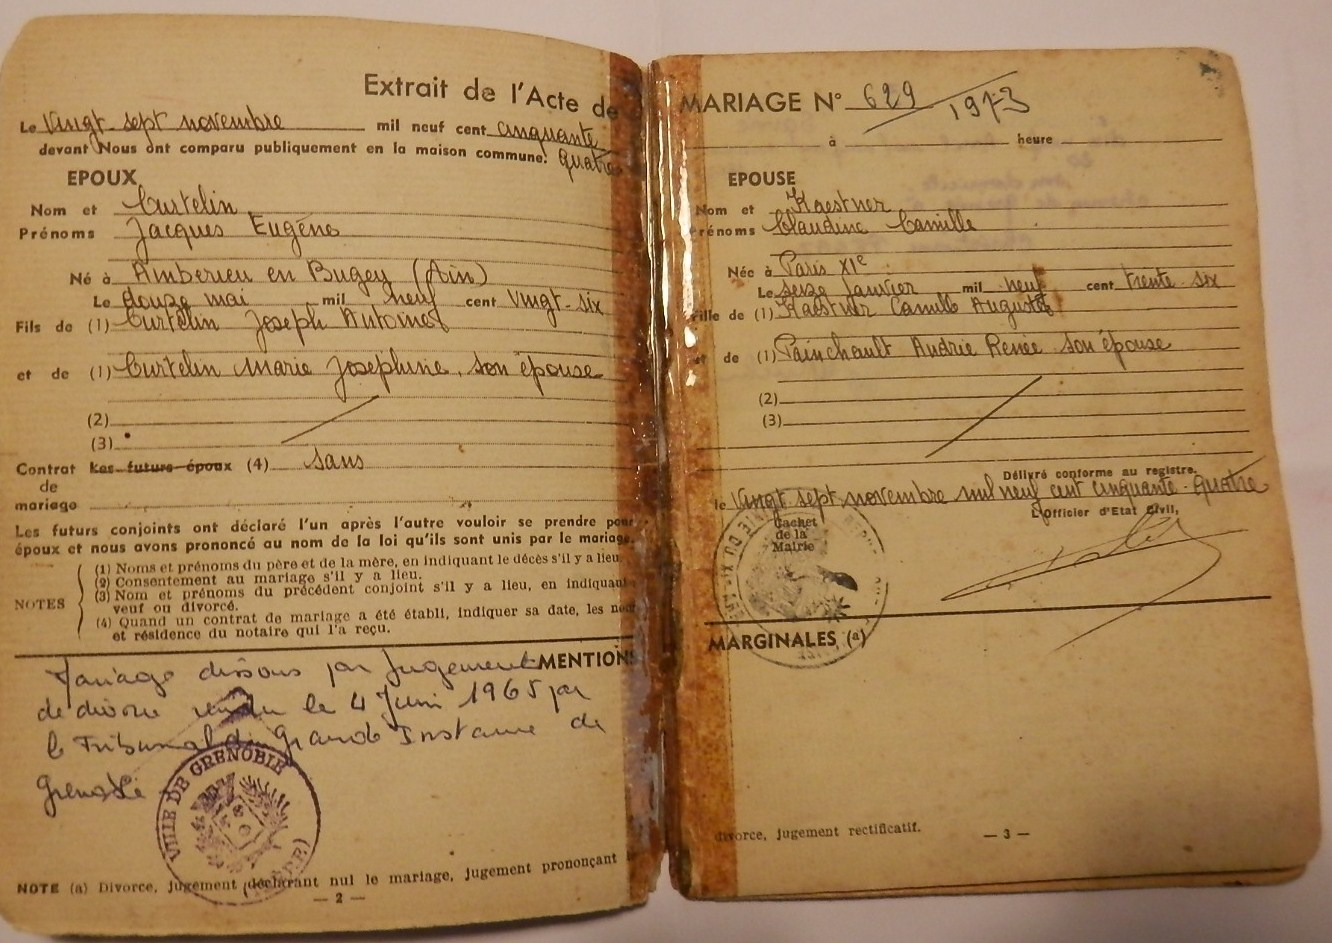 Extrait de l'Acte de
Le Vingt sept novembre mil neuf cent cinquante
quatre
devant Nous ont comparu publiquement en la maison commune:
EPOUX
Nom et Curtelin
Prénoms Jacques Eugène
Né à Amberieu en Bugey (Ain)
Le douze mai mil neuf cent vingt-six
Fils de (1) Curtelin Joseph Antoine
et de (1) Curtelin Marie Josephine, son épouse
(2)
(3)
Contrat Les futurs époux (4) sans
de
mariage
Les futurs conjoints ont déclaré l'un après l'autre vouloir se prendre pour
époux et nous avons prononcé au nom de la loi qu'ils sont unis par le mariage.
NOTES
(1) Noms et prénoms du père et de la mère, en indiquant le décès s'il y a lieu.
(2) Consentement au mariage s'il y a lieu.
(3) Nom et prénoms du précédent conjoint s'il y a lieu, en indiquant
veuf ou divorcé.
(4) Quand un contrat de mariage a été établi, indiquer sa date, les
et résidence du notaire qui l'a reçu.
MENTIONS
Mariage dissous par Jugement
de divorce rendu le 4 Juin 1965 par
le Tribunal de Grande Instance de
Grenoble
VILLE DE GRENOBLE
(ISERE)
NOTE (a) Divorce, jugement déclarant nul le mariage, jugement prononçant
— 2 —
MARIAGE N° 629 1973
à heure
EPOUSE
Nom et Kaestner
Prénoms Claudine Camille
Née à Paris XIe
Le seize Janvier mil neuf cent trente six
Fille de (1) Kaestner Camille Auguste
et de (1) Painchault Andrée Renée son épouse
(2)
(3)
Délivré conforme au registre.
le Vingt sept novembre mil neuf cent cinquante-quatre
L'Officier d'Etat Civil,
Cachet
de la
Mairie
MARGINALES (a)
divorce, jugement rectificatif.
— 3 —